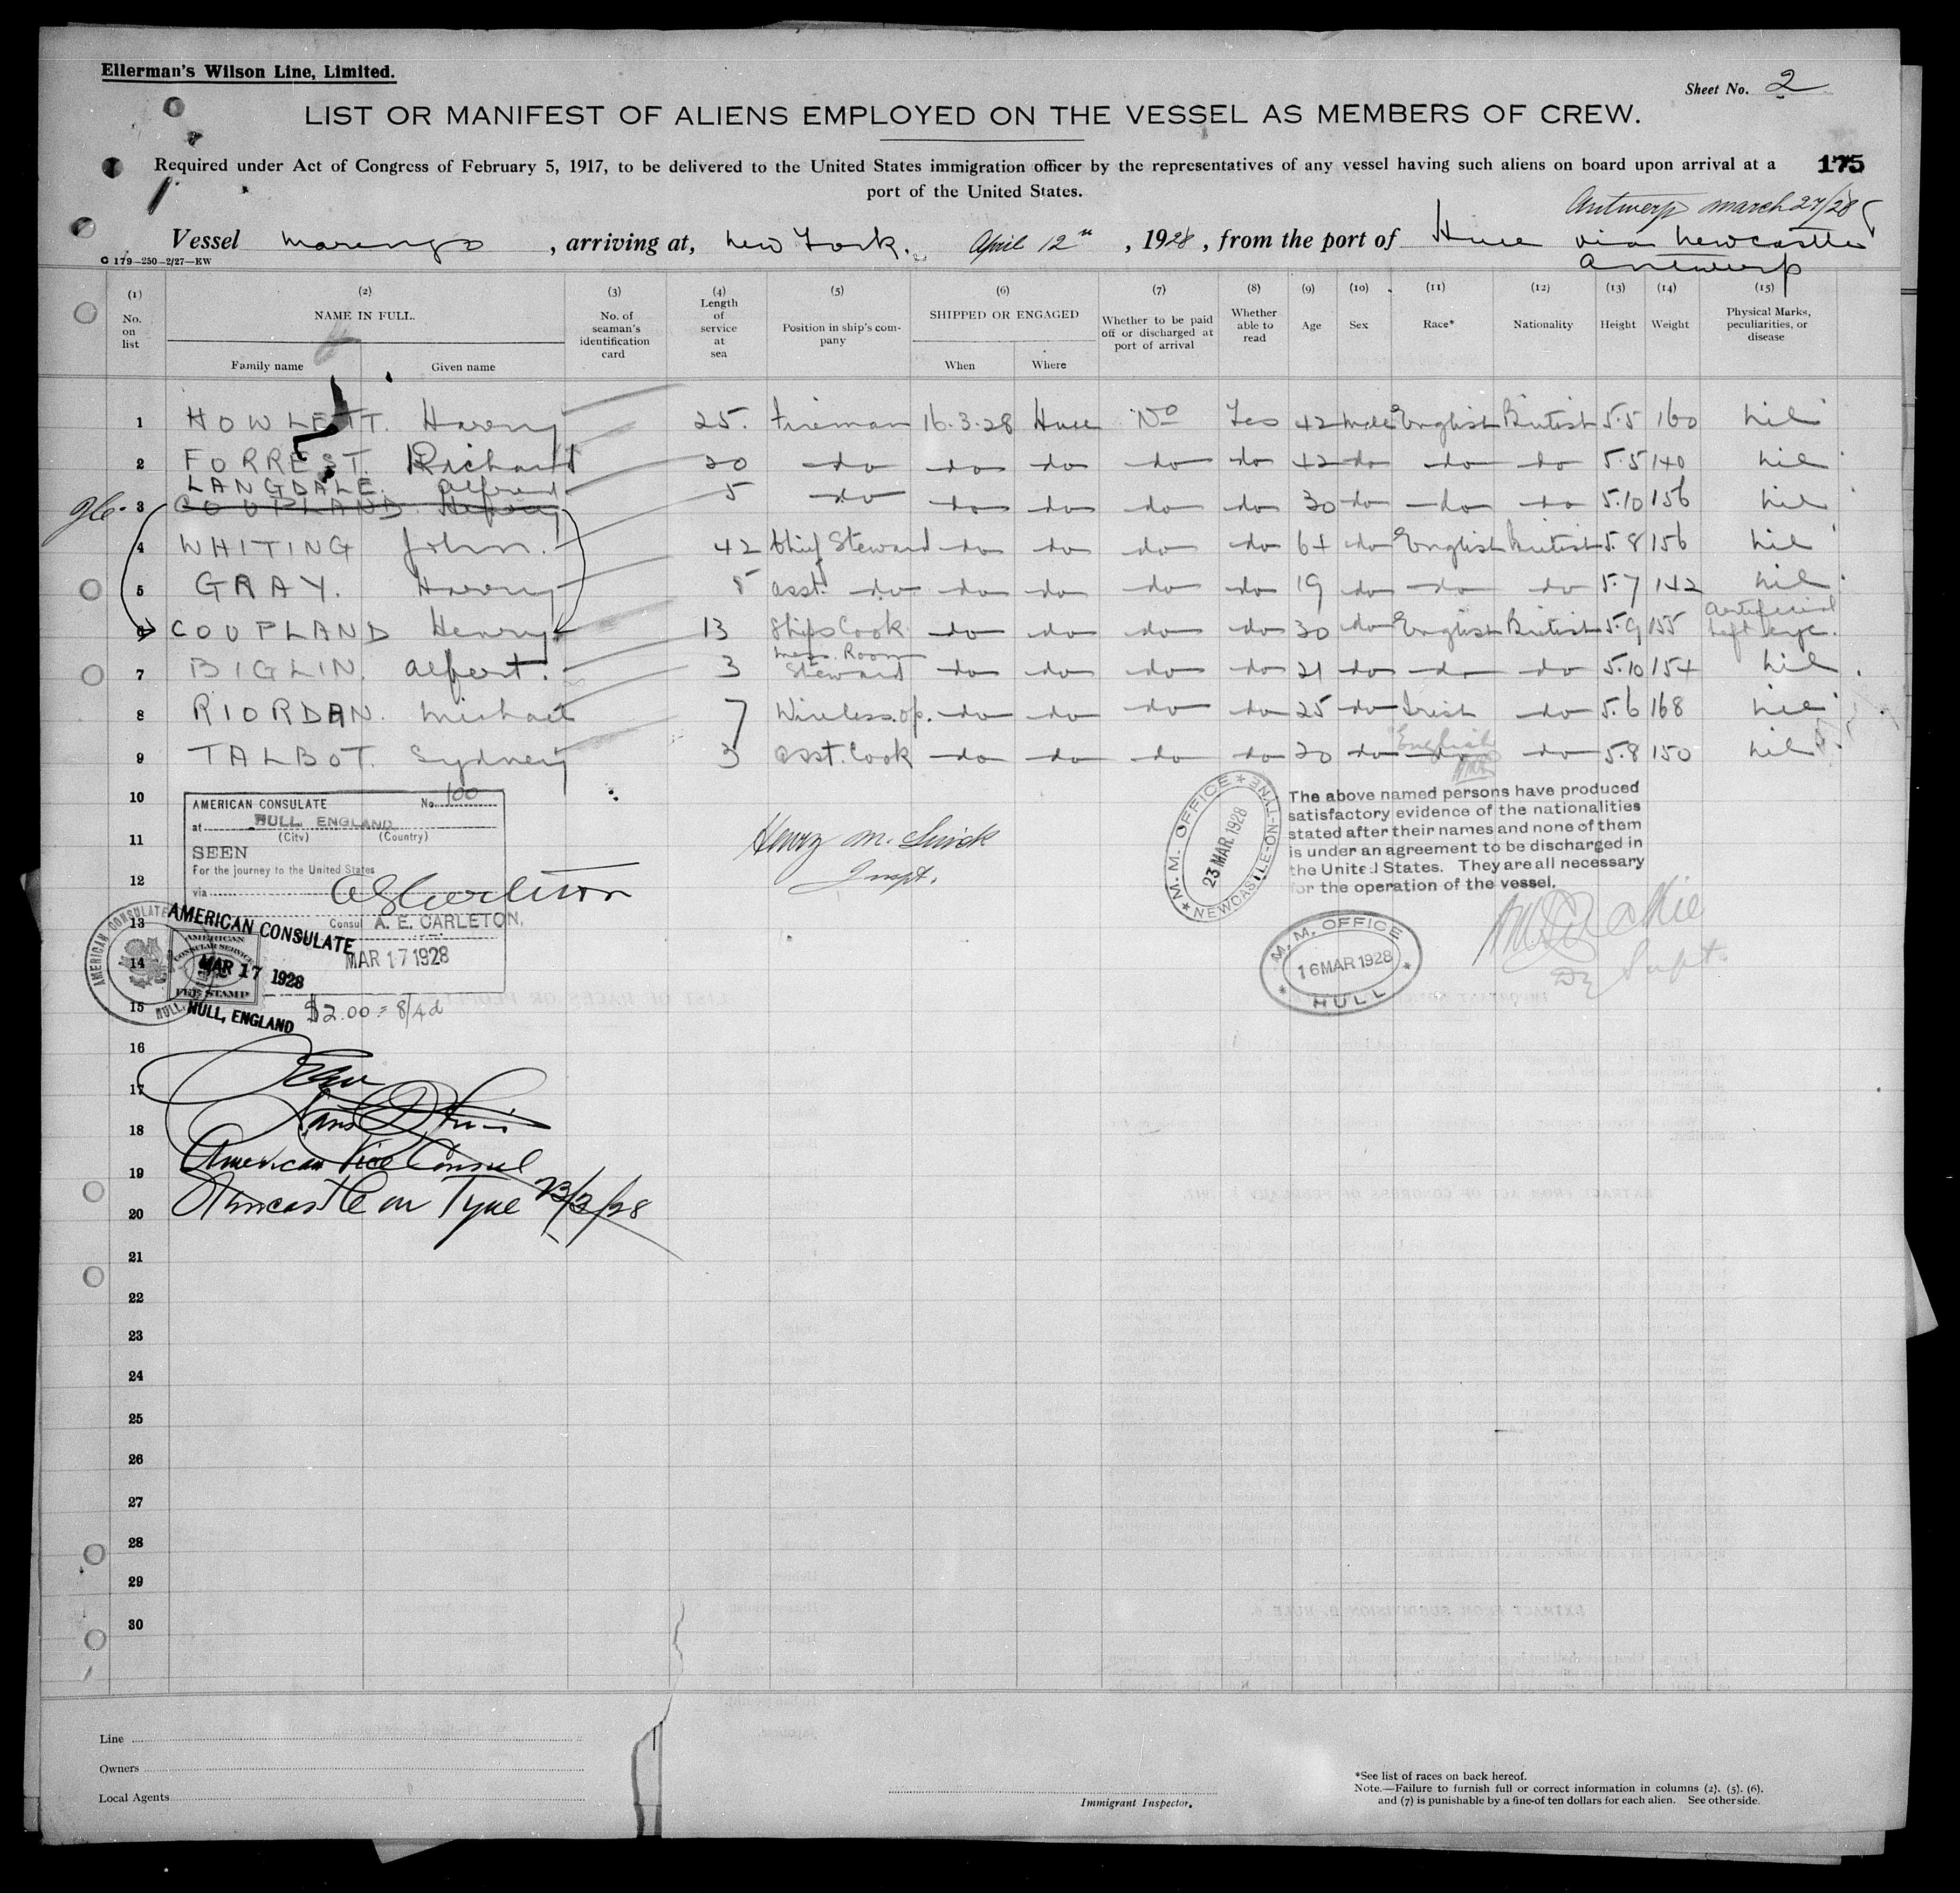 Ellerman's Wilson Line, Limited.
Sheet No. 2
LIST OR MANIFEST OF ALIENS EMPLOYED ON THE VESSEL AS MEMBERS OF CREW.
Required under Act of Congress of February 5, 1917, to be delivered to the United States immigration officer by the representatives of any vessel having such aliens on board upon arrival at a 175
port of the United States.
Antwerp march 27/28
Vessel Marengo, arriving at, New York. April 12th, 1928, from the port of Hull via Newcastle
Antwerp
C 179—250—2/27—EW
(1) No. on list (2) NAME IN FULL. Family name Given name (3) No. of seaman's identification card (4) Length of service at sea (5) Position in ship's company (6) SHIPPED OR ENGAGED When Where (7) Whether to be paid off or discharged at port of arrival (8) Whether able to read (9) Age (10) Sex (11) Race* (12) Nationality (13) Height (14) Weight (15) Physical Marks, peculiarities, or disease
1 HOWLETT. Harry 25. Fireman 16.3.28 Hull No Yes 42 Male English British 5.5 160 nil
2 FORREST. Richard 20 do do do do do 42 do do do 5.5 140 nil
LANGDALE. Alfred 5 do
3 COUPLAND Henry do do do do 30 do do do 5.10 156 nil
4 WHITING John. 42 Chief Steward do do do do 64 do English British 5.8 156 nil
5 GRAY. Harry 8 asst. do do do do do 19 do do do 5.7 142 nil
6 COUPLAND Henry 13 Ships Cook do do do do 30 do English British 5.9 155 Artificial left eye.
7 BIGLIN. Albert. 3 Mess. Room Steward do do do do 21 do do do 5.10 154 nil
8 RIORDAN. Michael 7 Wireless op. do do do do 25 do Irish do 5.6 168 nil
9 TALBOT. Sydney 3 asst. Cook do do do do 20 do English do do 5.8 150 nil
10
11
12
13
14
15
16
17
18
19
20
21
22
23
24
25
26
27
28
29
30
AMERICAN CONSULATE No. 100
at HULL. ENGLAND
(City) (Country)
SEEN
For the journey to the United States
via
Consul A. E. CARLETON.
MAR 17 1928
AMERICAN CONSULATE
AMERICAN CONSULAR SERVICE
MAR 17 1928
FEE STAMP
HULL, ENGLAND
$2.00 = 8/4d
Seen
American Vice Consul
Newcastle on Tyne 23/3/28
Inspt.
M. M. OFFICE
23 MAR 1928
NEWCASTLE-ON-TYNE
The above named persons have produced
satisfactory evidence of the nationalities
stated after their names and none of them
is under an agreement to be discharged in
the United States. They are all necessary
for the operation of the vessel.
Dy Supt.
M. M. OFFICE
16 MAR 1928
HULL
Line
Owners
Local Agents
Immigrant Inspector.
*See list of races on back hereof.
Note.—Failure to furnish full or correct information in columns (2), (5), (6),
and (7) is punishable by a fine of ten dollars for each alien. See other side.